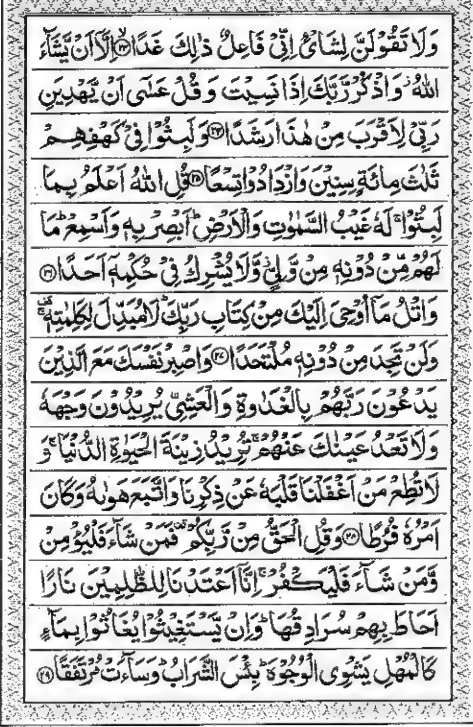 وَلَا تَقُوْلَنَّ لِشَایْءٍ اِنِّیْ فَاعِلٌ ذٰلِكَ غَدًا ﴿۲۳﴾ اِلَّاۤ اَنْ یَّشَآءَ
اللّٰهُ ؗ وَاذْكُرْ رَّبَّكَ اِذَا نَسِیْتَ وَ قُلْ عَسٰۤی اَنْ یَّهْدِیَنِ
رَبِّیْ لِاَقْرَبَ مِنْ هٰذَا رَشَدًا ﴿۲۴﴾ وَلَبِثُوْا فِیْ كَهْفِهِمْ
ثَلٰثَ مِائَةٍ سِنِیْنَ وَازْدَادُوْا تِسْعًا ﴿۲۵﴾ قُلِ اللّٰهُ اَعْلَمُ بِمَا
لَبِثُوْا ۚ لَهٗ غَیْبُ السَّمٰوٰتِ وَالْاَرْضِ ؕ اَبْصِرْ بِهٖ وَاَسْمِعْ ؕ مَا
لَهُمْ مِّنْ دُوْنِهٖ مِنْ وَّلِیٍّ ؗ وَّلَا یُشْرِكُ فِیْ حُكْمِهٖۤ اَحَدًا ﴿۲۶﴾
وَاتْلُ مَاۤ اُوْحِیَ اِلَیْكَ مِنْ كِتَابِ رَبِّكَ ؕ لَا مُبَدِّلَ لِكَلِمٰتِهٖ ۫ۚ
وَلَنْ تَجِدَ مِنْ دُوْنِهٖ مُلْتَحَدًا ﴿۲۷﴾ وَاصْبِرْ نَفْسَكَ مَعَ الَّذِیْنَ
یَدْعُوْنَ رَبَّهُمْ بِالْغَدٰوةِ وَالْعَشِیِّ یُرِیْدُوْنَ وَجْهَهٗ
وَلَا تَعْدُ عَیْنٰكَ عَنْهُمْ ۚ تُرِیْدُ زِیْنَةَ الْحَیٰوةِ الدُّنْیَا ۚ وَ
لَا تُطِعْ مَنْ اَغْفَلْنَا قَلْبَهٗ عَنْ ذِكْرِنَا وَاتَّبَعَ هَوٰىهُ وَكَانَ
اَمْرُهٗ فُرُطًا ﴿۲۸﴾ وَقُلِ الْحَقُّ مِنْ رَّبِّكُمْ ۫ فَمَنْ شَآءَ فَلْیُؤْمِنْ
وَّمَنْ شَآءَ فَلْیَكْفُرْ ۙ اِنَّاۤ اَعْتَدْنَا لِلظّٰلِمِیْنَ نَارًا ۙ
اَحَاطَ بِهِمْ سُرَادِقُهَا ؕ وَاِنْ یَّسْتَغِیْثُوْا یُغَاثُوْا بِمَآءٍ
كَالْمُهْلِ یَشْوِی الْوُجُوْهَ ؕ بِئْسَ الشَّرَابُ ؕ وَسَآءَتْ مُرْتَفَقًا ﴿۲۹﴾